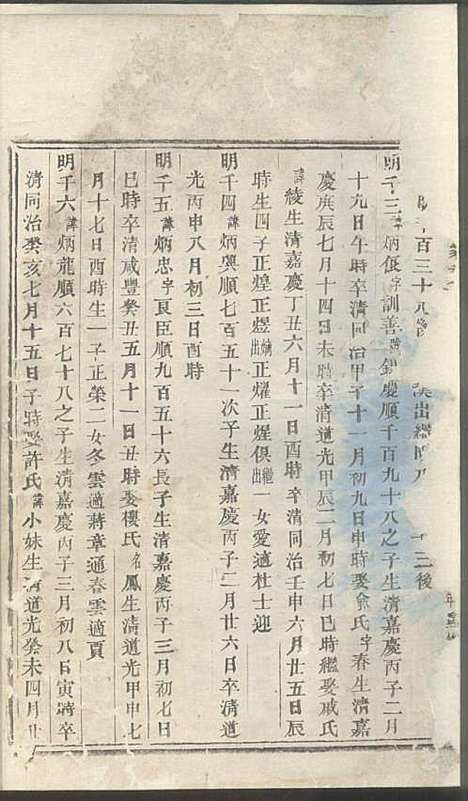 百三十八 出繼 三後
明千三諱炳佷字訓善號錦慶順千百九十八之子生清嘉慶丙子二月
十九日午時卒清同治甲子十一月初九日申時娶俞氏字春生清嘉
慶庚辰七月十四日未時卒清道光甲辰二月初七日巳時繼娶戚氏
諱綾生清嘉慶丁丑六月十一日酉時卒清同治壬申六月廿五日辰
時生四子正煌正煜嫡出正燿正煋俱繼出一女愛適杜士迎
明千四諱炳興順七百五十一次子生清嘉慶丙子二月廿六日卒清道
光丙申八月初三日酉時
明千五諱炳忠字良臣順九百五十六長子生清嘉慶丙子三月初七日
巳時卒清咸豐癸丑五月十一日丑時娶樓氏名鳳生清道光甲申七
月十七日酉時生一子正榮二女冬雲適蔣章通春雲適賈
明千六諱炳龍順六百七十八之子生清嘉慶丙子三月初八日寅時卒
清同治癸亥七月十五日子時娶許氏諱小妹生清道光癸未四月廿